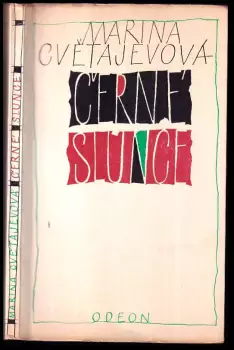 MARINA
CVĚTAJEVOVÁ
ČERNÉ
SLUNCE
ODEON
MARINA CVĚTAJEVOVÁ ČERNÉ SLUNCE